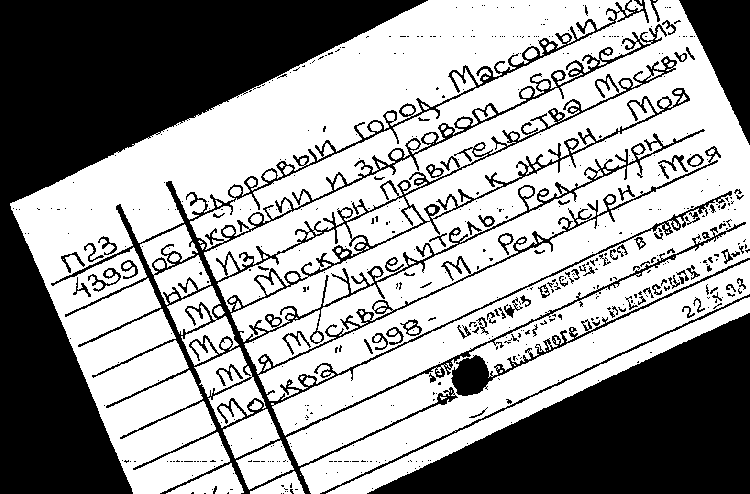 Здоровый город: Массовый жур
П23 об экологии и здоровом образе жиз-
4399 ни: Изд. журн. Правительства Москвы
„Моя Москва": Прил. к журн. „Моя
Москва" / Учредитель: Ред. журн.
„Моя Москва". - М.: Ред. журн. „Моя
Москва", 1998-
Перечень имеющихся в библиотеке
в каталоге
22/X 98